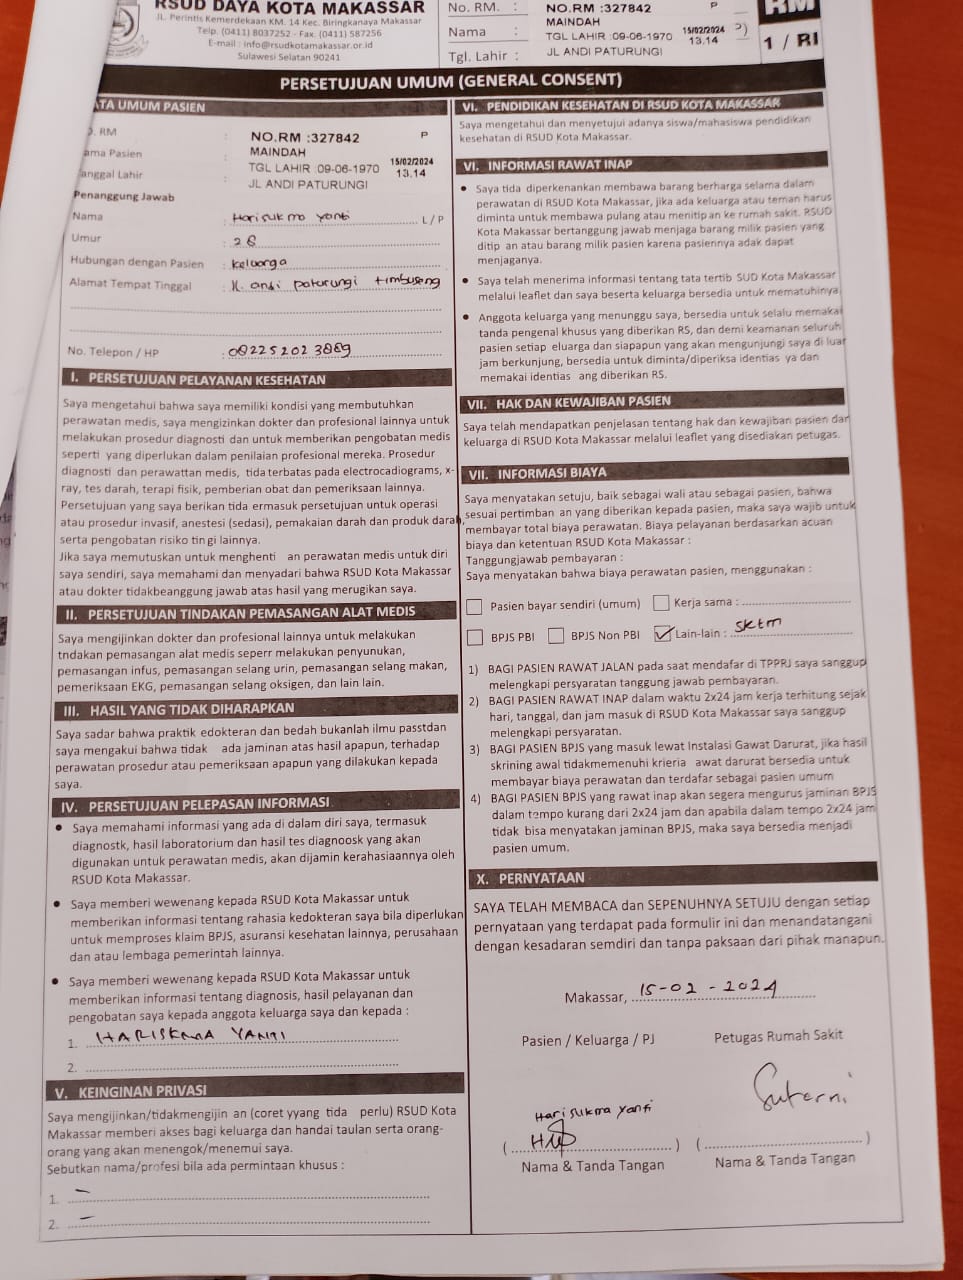 RSUD DAYA KOTA MAKASSAR
JL. Perintis Kemerdekaan KM. 14 Kec. Biringkanaya Makassar
Telp. (0411) 8037252 - Fax. (0411) 587256
E-mail : info@rsudkotamakassar.or.id
Sulawesi Selatan 90241
No. RM. :
Nama :
Tgl. Lahir :
NO.RM :327842 P
MAINDAH
TGL LAHIR :09-06-1970 15/02/2024
13.14
JL ANDI PATURUNGI
RM
1 / RI
PERSETUJUAN UMUM (GENERAL CONSENT)
ATA UMUM PASIEN
. RM :
ama Pasien :
anggal Lahir :
NO.RM :327842 P
MAINDAH
TGL LAHIR :09-06-1970 15/02/2024
13.14
JL ANDI PATURUNGI
Penanggung Jawab
Nama : Harisukma Yanti L / P
Umur : 28
Hubungan dengan Pasien : keluarga
Alamat Tempat Tinggal : Jl. andi paturungi timbuseng
No. Telepon / HP : 082252023889
I. PERSETUJUAN PELAYANAN KESEHATAN
Saya mengetahui bahwa saya memiliki kondisi yang membutuhkan
perawatan medis, saya mengizinkan dokter dan profesional lainnya untuk
melakukan prosedur diagnosti dan untuk memberikan pengobatan medis
seperti yang diperlukan dalam penilaian profesional mereka. Prosedur
diagnosti dan perawattan medis, tida terbatas pada electrocadiograms, x-
ray, tes darah, terapi fisik, pemberian obat dan pemeriksaan lainnya.
Persetujuan yang saya berikan tida ermasuk persetujuan untuk operasi
atau prosedur invasif, anestesi (sedasi), pemakaian darah dan produk darah,
serta pengobatan risiko tingi lainnya.
Jika saya memutuskan untuk menghenti an perawatan medis untuk diri
saya sendiri, saya memahami dan menyadari bahwa RSUD Kota Makassar
atau dokter tidakbeanggung jawab atas hasil yang merugikan saya.
II. PERSETUJUAN TINDAKAN PEMASANGAN ALAT MEDIS
Saya mengijinkan dokter dan profesional lainnya untuk melakukan
tndakan pemasangan alat medis seperr melakukan penyunukan,
pemasangan infus, pemasangan selang urin, pemasangan selang makan,
pemeriksaan EKG, pemasangan selang oksigen, dan lain lain.
III. HASIL YANG TIDAK DIHARAPKAN
Saya sadar bahwa praktik edokteran dan bedah bukanlah ilmu passtdan
saya mengakui bahwa tidak ada jaminan atas hasil apapun, terhadap
perawatan prosedur atau pemeriksaan apapun yang dilakukan kepada
saya.
IV. PERSETUJUAN PELEPASAN INFORMASI
• Saya memahami informasi yang ada di dalam diri saya, termasuk
diagnostk, hasil laboratorium dan hasil tes diagnoosk yang akan
digunakan untuk perawatan medis, akan dijamin kerahasiaannya oleh
RSUD Kota Makassar.
• Saya memberi wewenang kepada RSUD Kota Makassar untuk
memberikan informasi tentang rahasia kedokteran saya bila diperlukan
untuk memproses klaim BPJS, asuransi kesehatan lainnya, perusahaan
dan atau lembaga pemerintah lainnya.
• Saya memberi wewenang kepada RSUD Kota Makassar untuk
memberikan informasi tentang diagnosis, hasil pelayanan dan
pengobatan saya kepada anggota keluarga saya dan kepada :
1. HARISKMA YANTI
2.
V. KEINGINAN PRIVASI
Saya mengijinkan/tidakmengijin an (coret yyang tida perlu) RSUD Kota
Makassar memberi akses bagi keluarga dan handai taulan serta orang-
orang yang akan menengok/menemui saya.
Sebutkan nama/profesi bila ada permintaan khusus :
1. –
2. –
VI. PENDIDIKAN KESEHATAN DI RSUD KOTA MAKASSAR
Saya mengetahui dan menyetujui adanya siswa/mahasiswa pendidikan
kesehatan di RSUD Kota Makassar.
VI. INFORMASI RAWAT INAP
• Saya tida diperkenankan membawa barang berharga selama dalam
perawatan di RSUD Kota Makassar, jika ada keluarga atau teman harus
diminta untuk membawa pulang atau menitip an ke rumah sakit. RSUD
Kota Makassar bertanggung jawab menjaga barang milik pasien yang
ditip an atau barang milik pasien karena pasiennya adak dapat
menjaganya.
• Saya telah menerima informasi tentang tata tertib SUD Kota Makassar
melalui leaflet dan saya beserta keluarga bersedia untuk mematuhinya
• Anggota keluarga yang menunggu saya, bersedia untuk selalu memakai
tanda pengenal khusus yang diberikan RS, dan demi keamanan seluruh
pasien setiap eluarga dan siapapun yang akan mengunjungi saya di luar
jam berkunjung, bersedia untuk diminta/diperiksa identias ya dan
memakai identias ang diberikan RS.
VII. HAK DAN KEWAJIBAN PASIEN
Saya telah mendapatkan penjelasan tentang hak dan kewajiban pasien dan
keluarga di RSUD Kota Makassar melalui leaflet yang disediakan petugas.
VII. INFORMASI BIAYA
Saya menyatakan setuju, baik sebagai wali atau sebagai pasien, bahwa
sesuai pertimban an yang diberikan kepada pasien, maka saya wajib untuk
membayar total biaya perawatan. Biaya pelayanan berdasarkan acuan
biaya dan ketentuan RSUD Kota Makassar :
Tanggungjawab pembayaran :
Saya menyatakan bahwa biaya perawatan pasien, menggunakan :
Pasien bayar sendiri (umum) Kerja sama :
BPJS PBI BPJS Non PBI ✓ Lain-lain : sktm
1) BAGI PASIEN RAWAT JALAN pada saat mendafar di TPPRJ saya sanggup
melengkapi persyaratan tanggung jawab pembayaran.
2) BAGI PASIEN RAWAT INAP dalam waktu 2x24 jam kerja terhitung sejak
hari, tanggal, dan jam masuk di RSUD Kota Makassar saya sanggup
melengkapi persyaratan.
3) BAGI PASIEN BPJS yang masuk lewat Instalasi Gawat Darurat, jika hasil
skrining awal tidakmemenuhi krieria awat darurat bersedia untuk
membayar biaya perawatan dan terdafar sebagai pasien umum
4) BAGI PASIEN BPJS yang rawat inap akan segera mengurus jaminan BPJS
dalam tempo kurang dari 2x24 jam dan apabila dalam tempo 2x24 jam
tidak bisa menyatakan jaminan BPJS, maka saya bersedia menjadi
pasien umum.
X. PERNYATAAN
SAYA TELAH MEMBACA dan SEPENUHNYA SETUJU dengan setiap
pernyataan yang terdapat pada formulir ini dan menandatangani
dengan kesadaran semdiri dan tanpa paksaan dari pihak manapun.
Makassar, 15-02-2024
Pasien / Keluarga / PJ Petugas Rumah Sakit
Harisukma Yanti
( ) ( )
Nama & Tanda Tangan Nama & Tanda Tangan